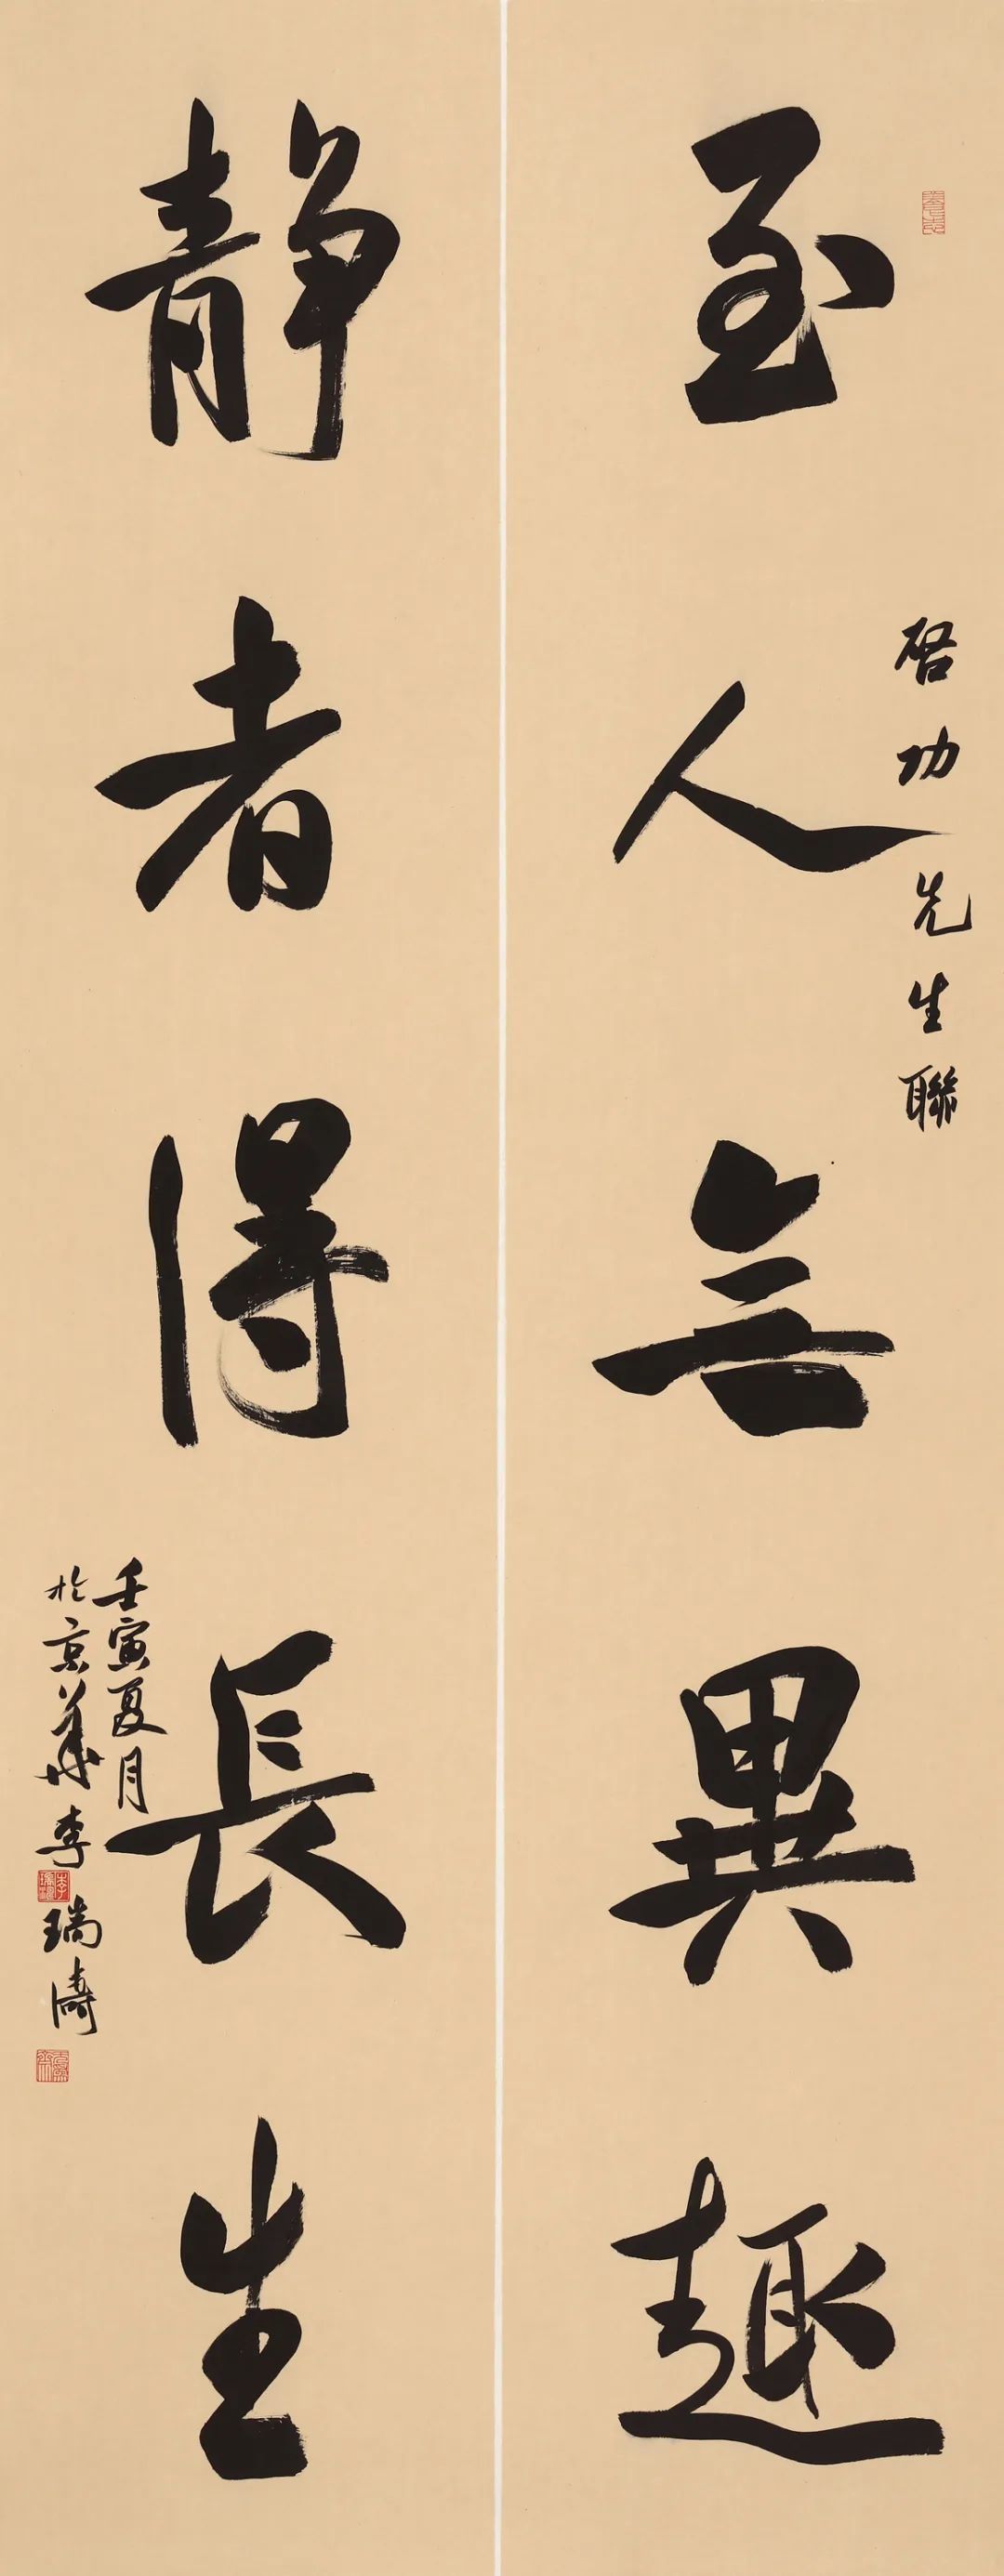 至人無異趣
啓功先生聯
静者得長生
壬寅夏月
於京華李瑞濤